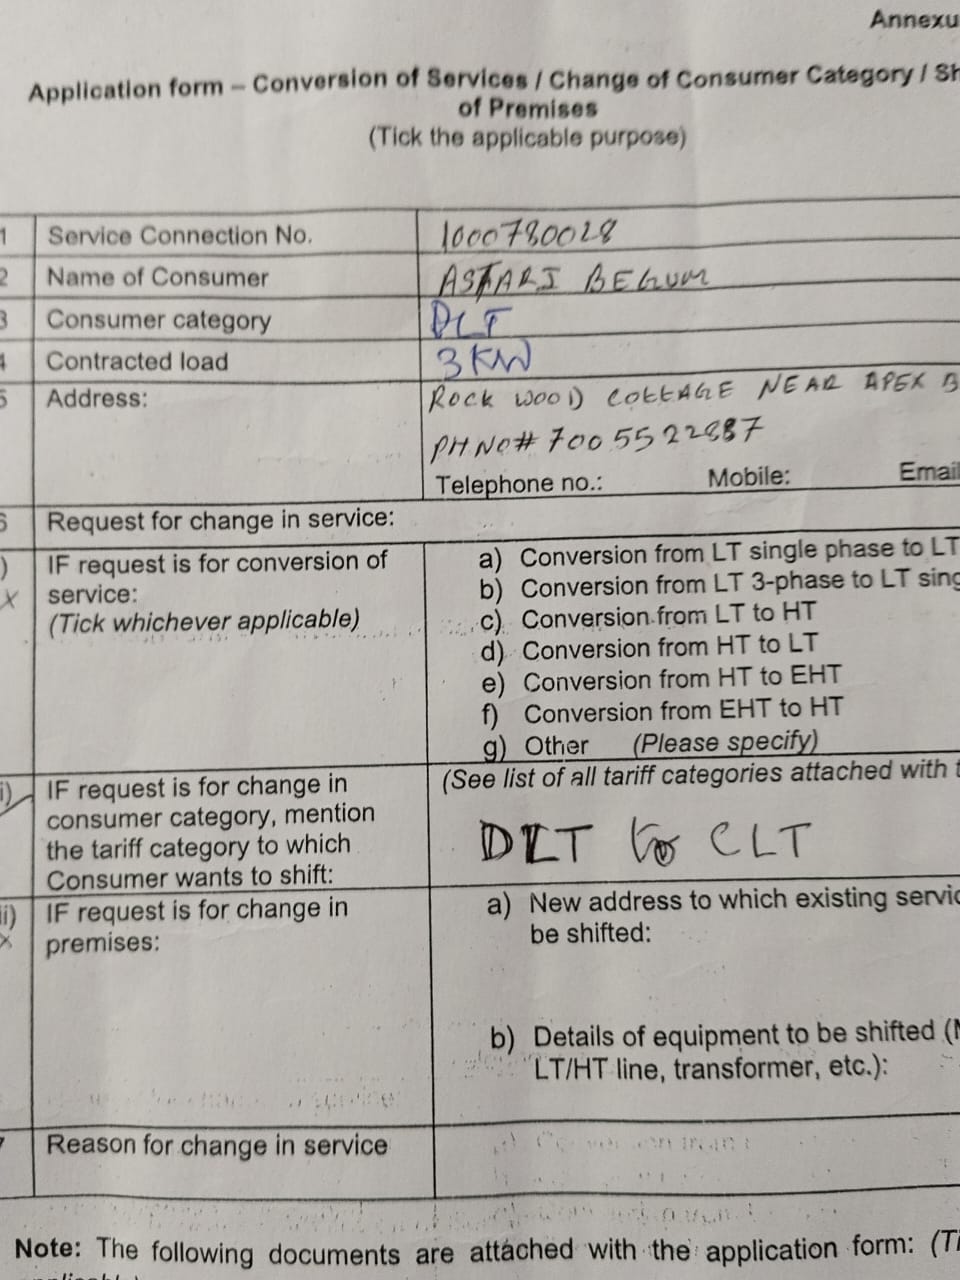 Annexu
Application form – Conversion of Services / Change of Consumer Category / Sh
of Premises
(Tick the applicable purpose)
1 Service Connection No. 1000780028
2 Name of Consumer ASFARI BEGUM
3 Consumer category DLT
4 Contracted load 3 KW
5 Address: ROCK WOOD COTTAGE NEAR APEX B
PH NO# 7005522887
Telephone no.: Mobile: Email
6 Request for change in service:
) IF request is for conversion of a) Conversion from LT single phase to LT
X service: b) Conversion from LT 3-phase to LT sing
(Tick whichever applicable) c) Conversion from LT to HT
d) Conversion from HT to LT
e) Conversion from HT to EHT
f) Conversion from EHT to HT
g) Other (Please specify)
i) IF request is for change in (See list of all tariff categories attached with t
consumer category, mention
the tariff category to which DLT to CLT
Consumer wants to shift:
ii) IF request is for change in a) New address to which existing servic
X premises: be shifted:
b) Details of equipment to be shifted (M
LT/HT line, transformer, etc.):
7 Reason for change in service
Note: The following documents are attached with the application form: (Ti